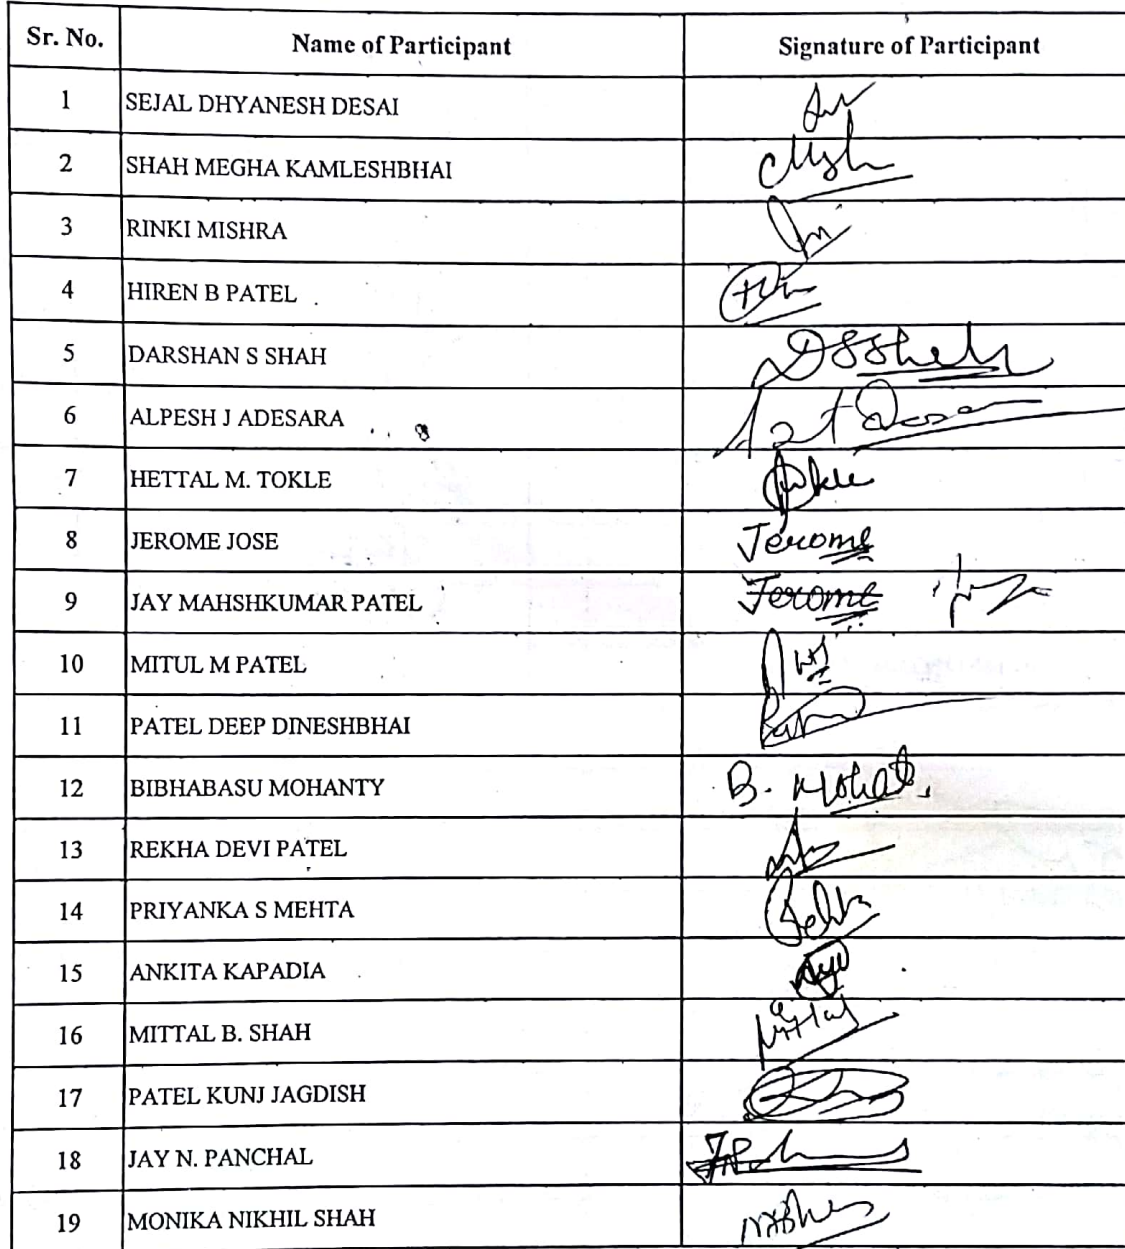 Sr. No. Name of Participant Signature of Participant
1 SEJAL DHYANESH DESAI
2 SHAH MEGHA KAMLESHBHAI
3 RINKI MISHRA
4 HIREN B PATEL
5 DARSHAN S SHAH DSShah
6 ALPESH J ADESARA
7 HETTAL M. TOKLE
8 JEROME JOSE Jerome
9 JAY MAHSHKUMAR PATEL Jerome
10 MITUL M PATEL
11 PATEL DEEP DINESHBHAI
12 BIBHABASU MOHANTY B.
13 REKHA DEVI PATEL
14 PRIYANKA S MEHTA
15 ANKITA KAPADIA
16 MITTAL B. SHAH
17 PATEL KUNJ JAGDISH
18 JAY N. PANCHAL
19 MONIKA NIKHIL SHAH